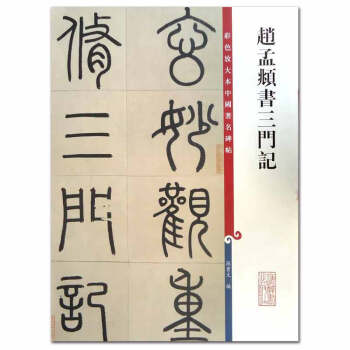 趙孟頫書三門記
彩色放大本中國著名碑帖
孫寶文 編
玄妙觀重
脩三門記